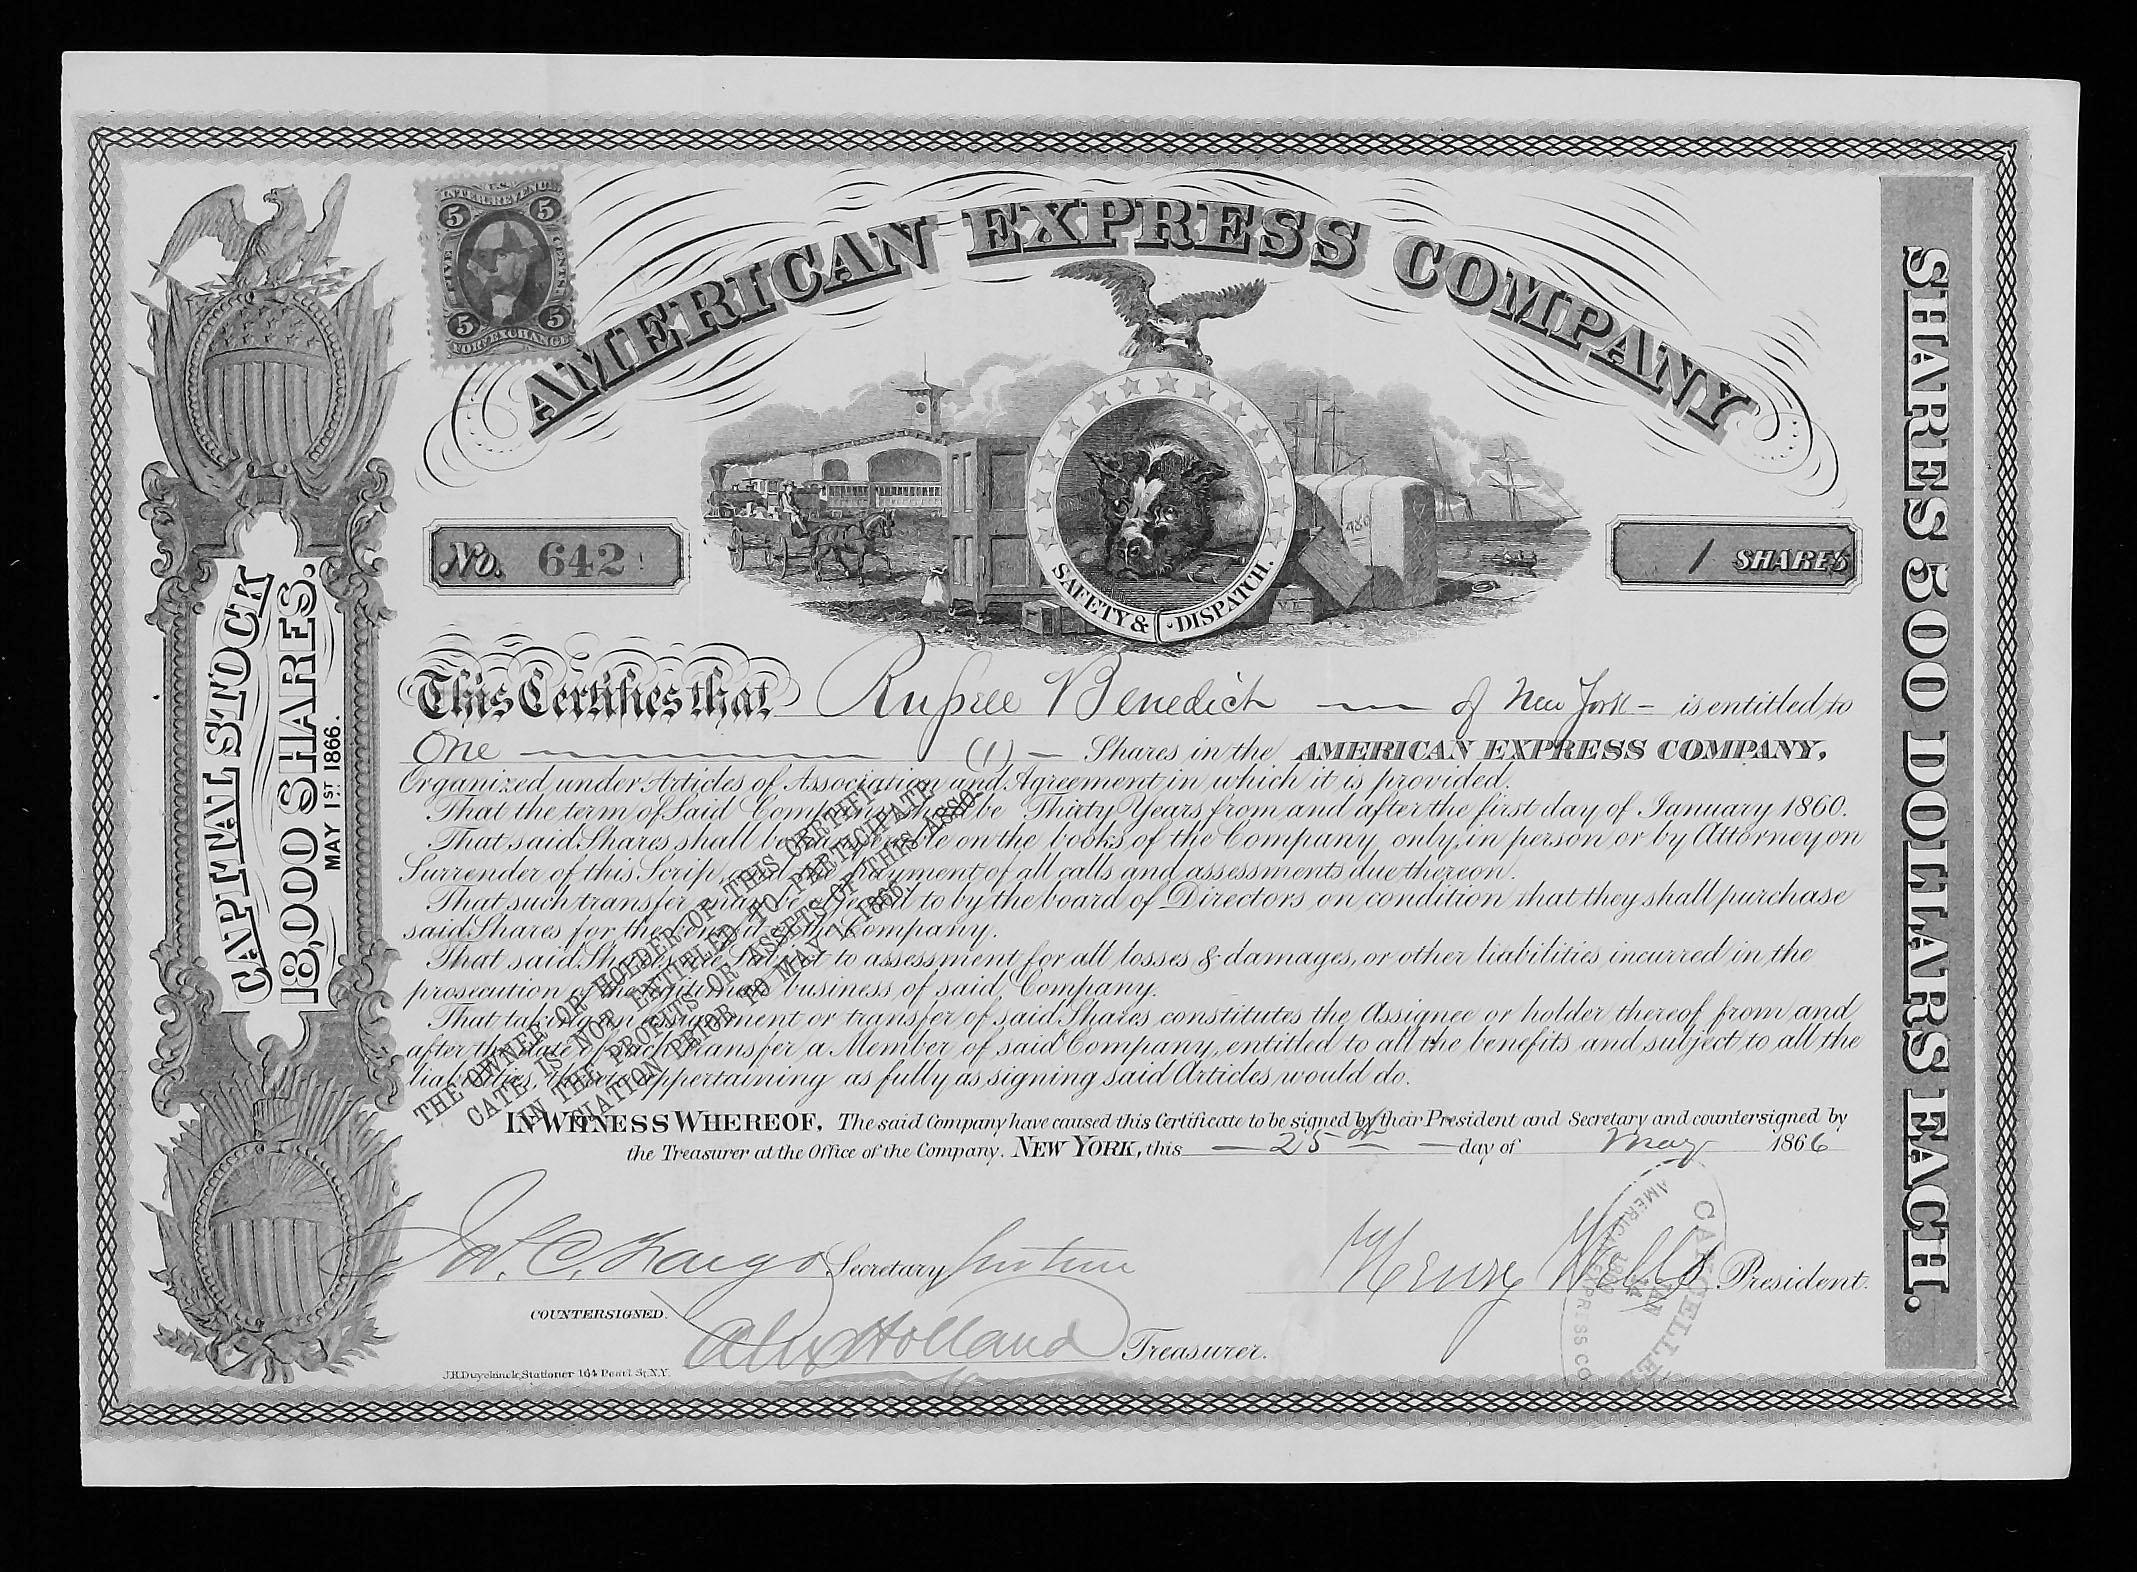 U.S.
INTER. REVENUE
5 5
FIVE CENTS
5 5
FOR EXCHANGE
AMERICAN EXPRESS COMPANY
SAFETY & DISPATCH.
No. 642
1 SHARES
CAPITAL STOCK
18,000 SHARES.
MAY 1ST 1866.
SHARES 500 DOLLARS EACH.
This Certifies that Benedict of New York is entitled to
One (1) Shares in the AMERICAN EXPRESS COMPANY,
Organized under Articles of Association and Agreement in which it is provided.
That the term of Said Company shall be Thirty Years from and after the first day of January 1860.
That said Shares shall be transferable on the books of the Company, only, in person or by Attorney on
Surrender of this Scrip, and payment of all calls and assessments due thereon.
That such transfer may be objected to by the board of Directors on condition that they shall purchase
said Shares for the benefit of the Company.
That said Shares are subject to assessment for all losses & damages, or other liabilities incurred in the
prosecution of the legitimate business of said Company.
That taking an assignment or transfer of said Shares constitutes the Assignee or holder thereof from and
after the date of such transfer a Member of said Company, entitled to all the benefits and subject to all the
liabilities, thereto appertaining as fully as signing said Articles would do.
THE OWNER OR HOLDER OF THIS CRETIFI-
CATE IS NOT ENTITLED TO PARTICIPATE
IN THE PROFITS OR ASSETS OF THIS ASSO-
CIATION PRIOR TO MAY 1, 1866.
IN WITNESS WHEREOF, The said Company have caused this Certificate to be signed by their President and Secretary and countersigned by
the Treasurer at the Office of the Company. NEW YORK, this 25th day of May 1866
Jas. C. Fargo Secretary pro tem
Henry Wells President.
COUNTERSIGNED.
Alex Holland Treasurer.
J.H. Duyckinck, Stationer 164 Pearl St. N.Y.
CANCELLED
JAN
AMERICAN EXPRESS CO